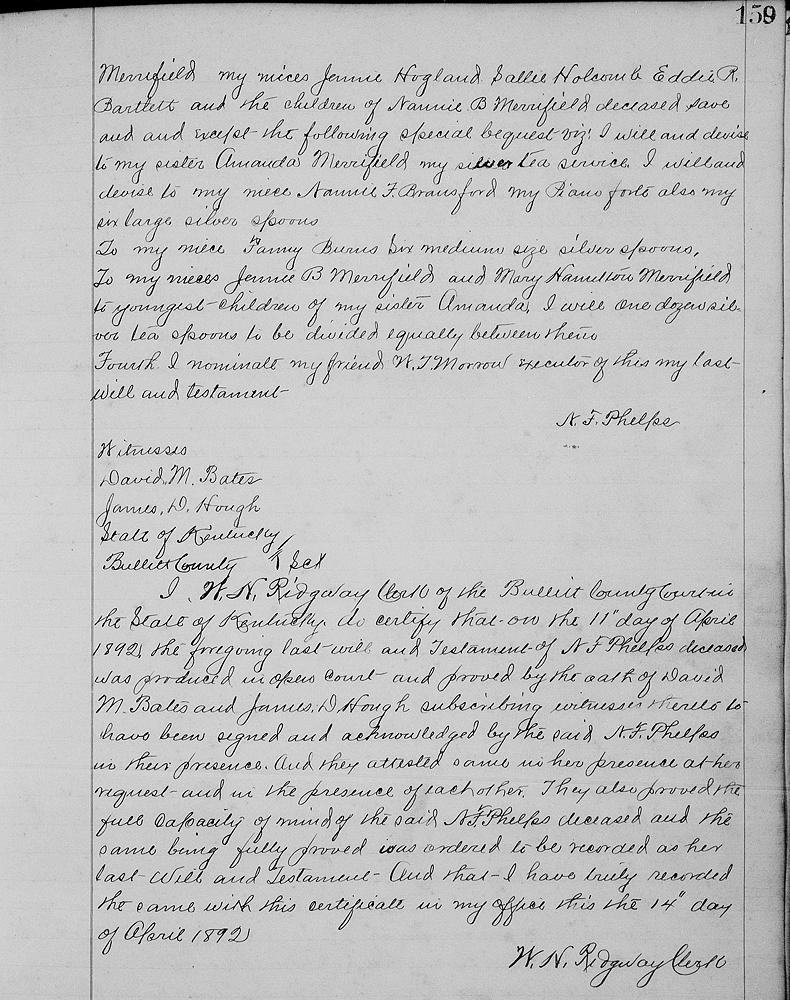 159
Merrifield my nieces Jennie Hogland Sallie Holcomb Eddie R.
Bartlett and the children of Nannie B Merrifield deceased save
and and except the following special bequest viz: I will and devise
to my sister Amanda Merrifield my silver tea service. I will and
devise to my niece Nannie F. Bransford my Piano forte also my
six large silver spoons
To my niece Fanny Burns Six medium size silver spoons,
To my nieces Jennie B Merrifield and Mary Hamilton Merrifield
to youngest children of my sister Amanda, I will one dozen sil-
ver tea spoons to be divided equally between them
Fourth. I nominate my friend W. T. Morrow executor of this my last
will and testament
N. F. Phelps
Witnesses
David. M. Bates
James. D. Hough
State of Kentucky
Bullitt County } Sct
I. W. N. Ridgway Clerk of the Bullitt County Court in
the State of Kentucky do certify that on the 11" day of April
1892, the foregoing last will and Testament of N F Phelps deceased
was produced in open court and proved by the oath of David
M. Bates and James. D. Hough subscribing witnesses thereto to
have been signed and acknowledged by the said N. F. Phelps
in their presence. And they attested same in her presence at her
request and in the presence of each other. They also proved the
full capacity of mind of the said N. F. Phelps deceased and the
same being fully proved was ordered to be recorded as her
last Will and Testament- And that I have truly recorded
the same with this certificate in my office this the 14" day
of April 1892
W. N. Ridgway Clerk